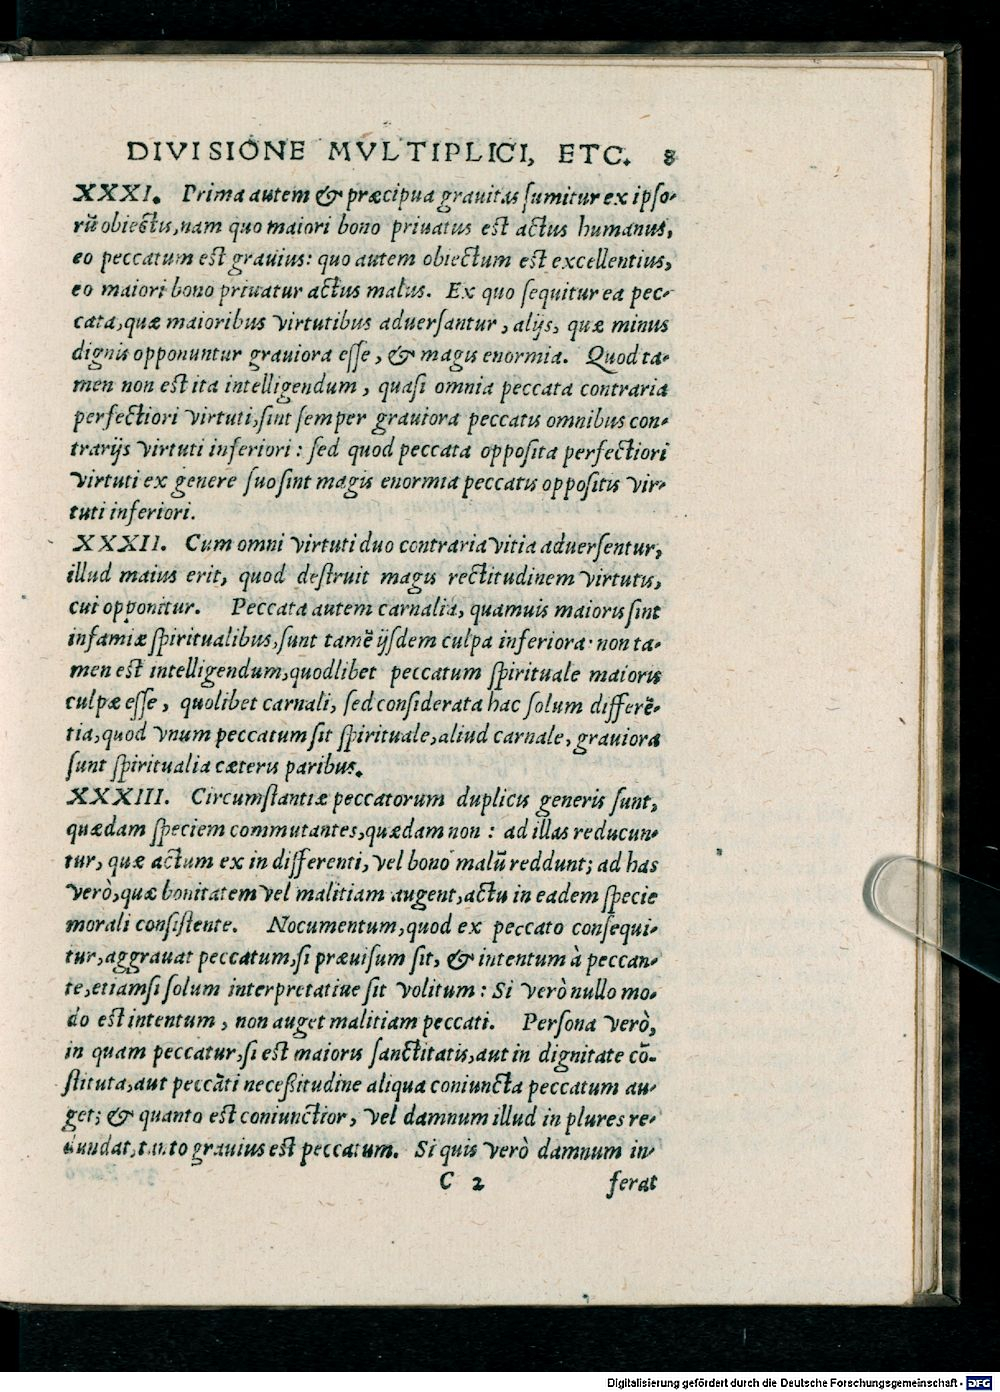 DIVISIONE MVLTIPLICI, ETC. 8
XXXI. Prima autem & præcipua grauitas sumitur ex ipso-
rũ obiectis, nam quo maiori bono priuatus est actus humanus,
eo peccatum est grauius: quo autem obiectum est excellentius,
eo maiori bono priuatur actus malus. Ex quo sequitur ea pec-
cata, quæ maioribus virtutibus aduersantur, alijs, quæ minus
dignis opponuntur grauiora esse, & magis enormia. Quod ta-
men non est ita intelligendum, quasi omnia peccata contraria
perfectiori virtuti, sint semper grauiora peccatis omnibus con-
trarijs virtuti inferiori: sed quod peccata opposita perfectiori
virtuti ex genere suo sint magis enormia peccatis oppositis vir-
tuti inferiori.
XXXII. Cum omni virtuti duo contraria vitia aduersentur,
illud maius erit, quod destruit magis rectitudinem virtutis,
cui opponitur. Peccata autem carnalia, quamuis maioris sint
infamiæ spiritualibus, sunt tamẽ ijsdem culpa inferiora· non ta-
men est intelligendum, quodlibet peccatum spirituale maioris
culpæ esse, quolibet carnali, sed considerata hac solum differẽ-
tia, quod vnum peccatum sit spirituale, aliud carnale, grauiora
sunt spiritualia cæteris paribus.
XXXIII. Circumstantiæ peccatorum duplicis generis sunt,
quædam speciem commutantes, quædam non: ad illas reducun-
tur, quæ actum ex in differenti, vel bono malũ reddunt; ad has
verò, quæ bonitatem vel malitiam augent, actu in eadem specie
morali consistente. Nocumentum, quod ex peccato consequi-
tur, aggrauat peccatum, si præuisum sit, & intentum à peccan-
te, etiamsi solum interpretatiue sit volitum: Si verò nullo mo-
do est intentum, non auget malitiam peccati. Persona verò,
in quam peccatur, si est maioris sanctitatis, aut in dignitate cõ-
stituta, aut peccãti necessitudine aliqua coniuncta peccatum au-
get; & quanto est coniunctior, vel damnum illud in plures re-
dundat, tanto grauius est peccatum. Si quis verò damnum in-
C 2 ferat
Digitalisierung gefördert durch die Deutsche Forschungsgemeinschaft - DFG